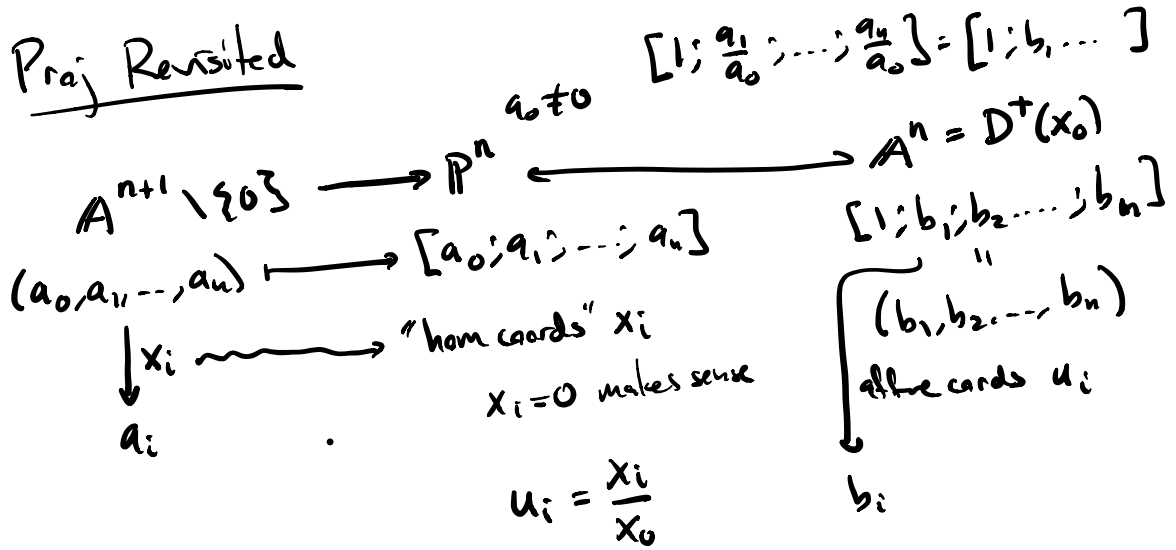 Proj Revisited
[1; a₁/a₀; ...; aₙ/a₀] = [1; b₁ ... ]
a₀ ≠ 0
𝔸ⁿ⁺¹ \ {0} ⟶ ℙⁿ ⟷ 𝔸ⁿ = D⁺(x₀)
(a₀, a₁, ..., aₙ) ⟼ [a₀; a₁; ...; aₙ]
[1; b₁; b₂ ... ; bₙ]
"
(b₁, b₂, ..., bₙ)
↓ xᵢ ⇝ "hom coords" xᵢ
xᵢ = 0 makes sense
affine coords uᵢ
aᵢ
uᵢ = xᵢ/x₀
bᵢ